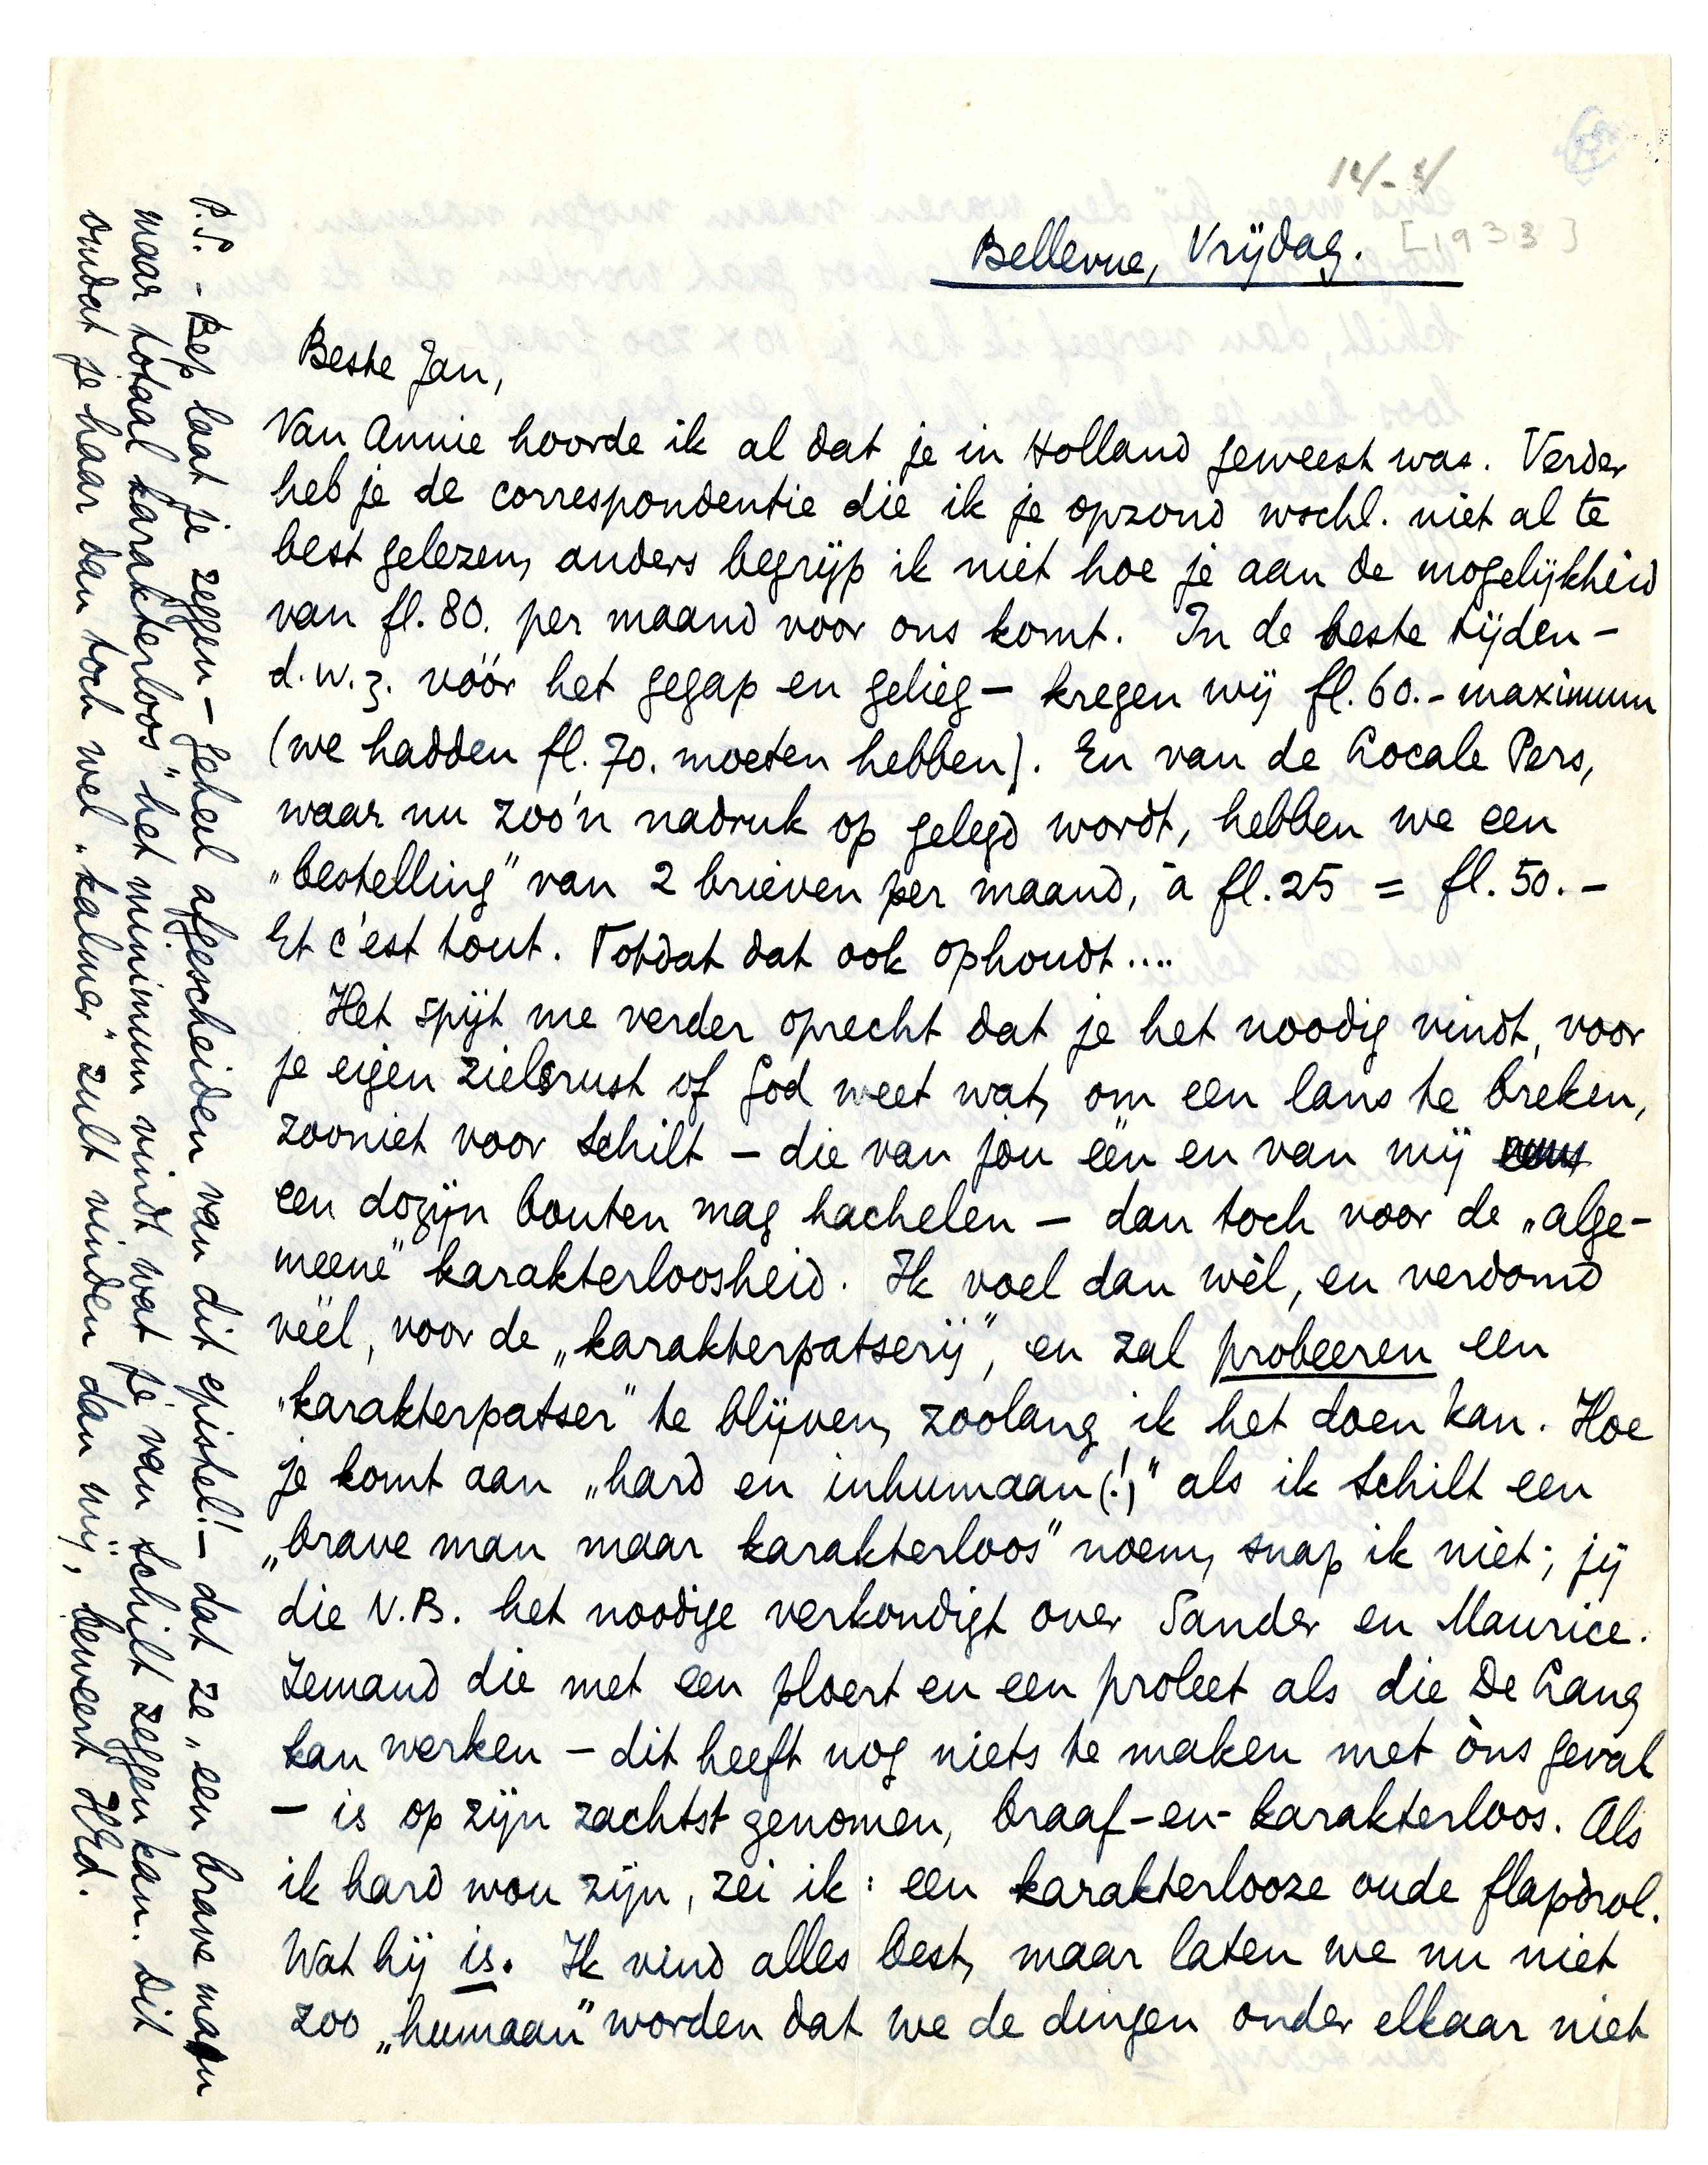 14/-4/
Bellevue, Vrijdag. [1933]
Beste Jan,
Van Annie hoorde ik al dat je in Holland geweest was. Verder
heb je de correspondentie die ik je opzond wschl. niet al te
best gelezen, anders begrijp ik niet hoe je aan de mogelijkheid
van fl. 80. per maand voor ons komt. In de beste tijden –
d.w.z. vóór het gegap en gelieg – kregen wij fl. 60.- maximum
(we hadden fl. 70. moeten hebben). En van de Locale Pers,
waar nu zoo'n nadruk op gelegd wordt, hebben we een
„bestelling” van 2 brieven per maand, à fl. 25 = fl. 50. –
Et c'est tout. Totdat dat ook ophoudt....
Het spijt me verder oprecht dat je het noodig vindt, voor
je eigen zielsrust of God weet wat, om een lans te breken,
zooniet voor Schilt – die van jou één en van mij
een dozijn bouten mag hachelen – dan toch voor de „alge-
meene” karakterloosheid. Ik voel dan wèl, en verdomd
véél, voor de „karakterpatserij”, en zal probeeren een
„karakterpatser” te blijven, zoolang ik het doen kan. Hoe
je komt aan „hard en inhumaan(!)” als ik Schilt een
„brave man maar karakterloos” noem, snap ik niet; jij
die N.B. het noodige verkondigt over Sander en Maurice.
Iemand die met een ploert en een proleet als die De Lang
kan werken – dit heeft nog niets te maken met òns geval
– is op zijn zachtst genomen, braaf-en-karakterloos. Als
ik hard wou zijn, zei ik: een karakterlooze oude flapdrol.
Wat hij is. Ik vind alles best, maar laten we nu niet
zoo „humaan” worden dat we de dingen onder elkaar niet
P.S. – Bep laat je zeggen – geheel afgescheiden van dit epistel! – dat ze „een brave man
maar totaal karakterloos” het minimum vindt wat je van Schilt zeggen kan. Dit
omdat je haar dan toch wel „kalmer” zult vinden dan mij, beweert HEd.